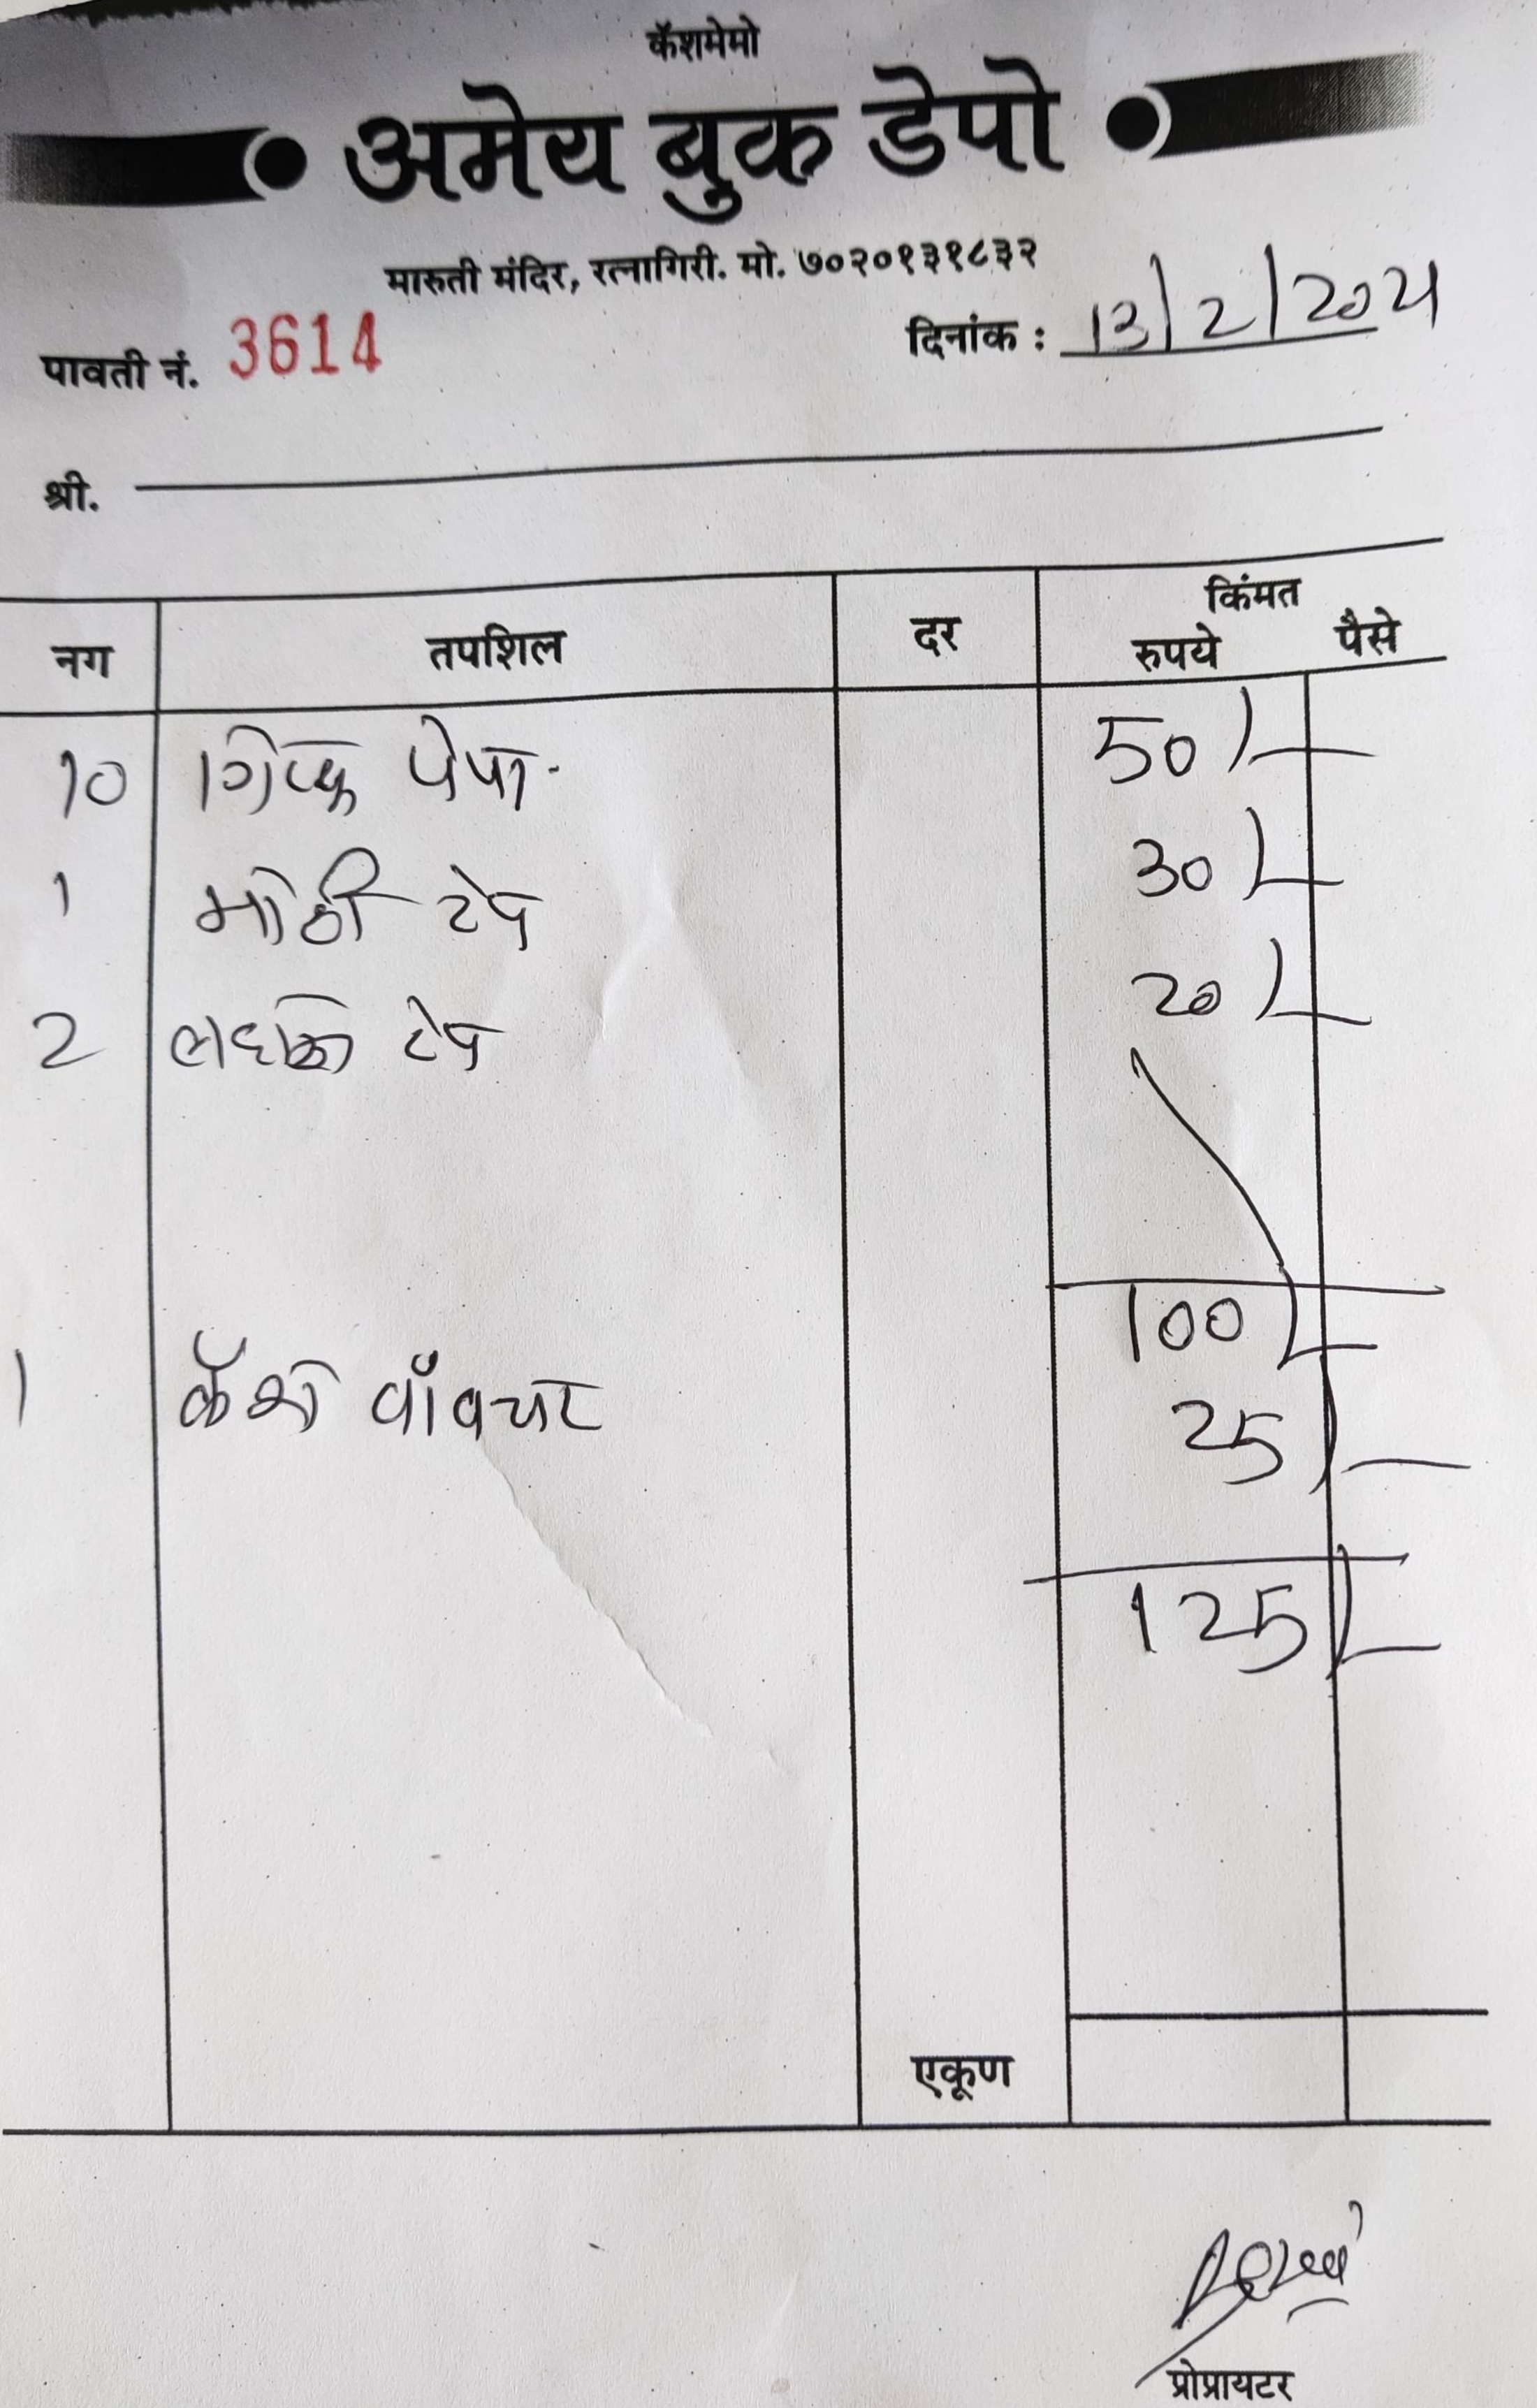 कॅशमेमो
अमेय बुक डेपो
मारुती मंदिर, रत्नागिरी. मो. ७०२०१३१८३२
पावती नं. 3614 दिनांक : 13/2/2024
श्री.
नग तपशिल दर किंमत रुपये पैसे
10 गिफ्ट पेपर 50/-
1 मोठी टेप 30/-
2 टेप 20/-
100/-
1 कॅश वॉवचर 25/-
125/-
एकूण
प्रोप्रायटर